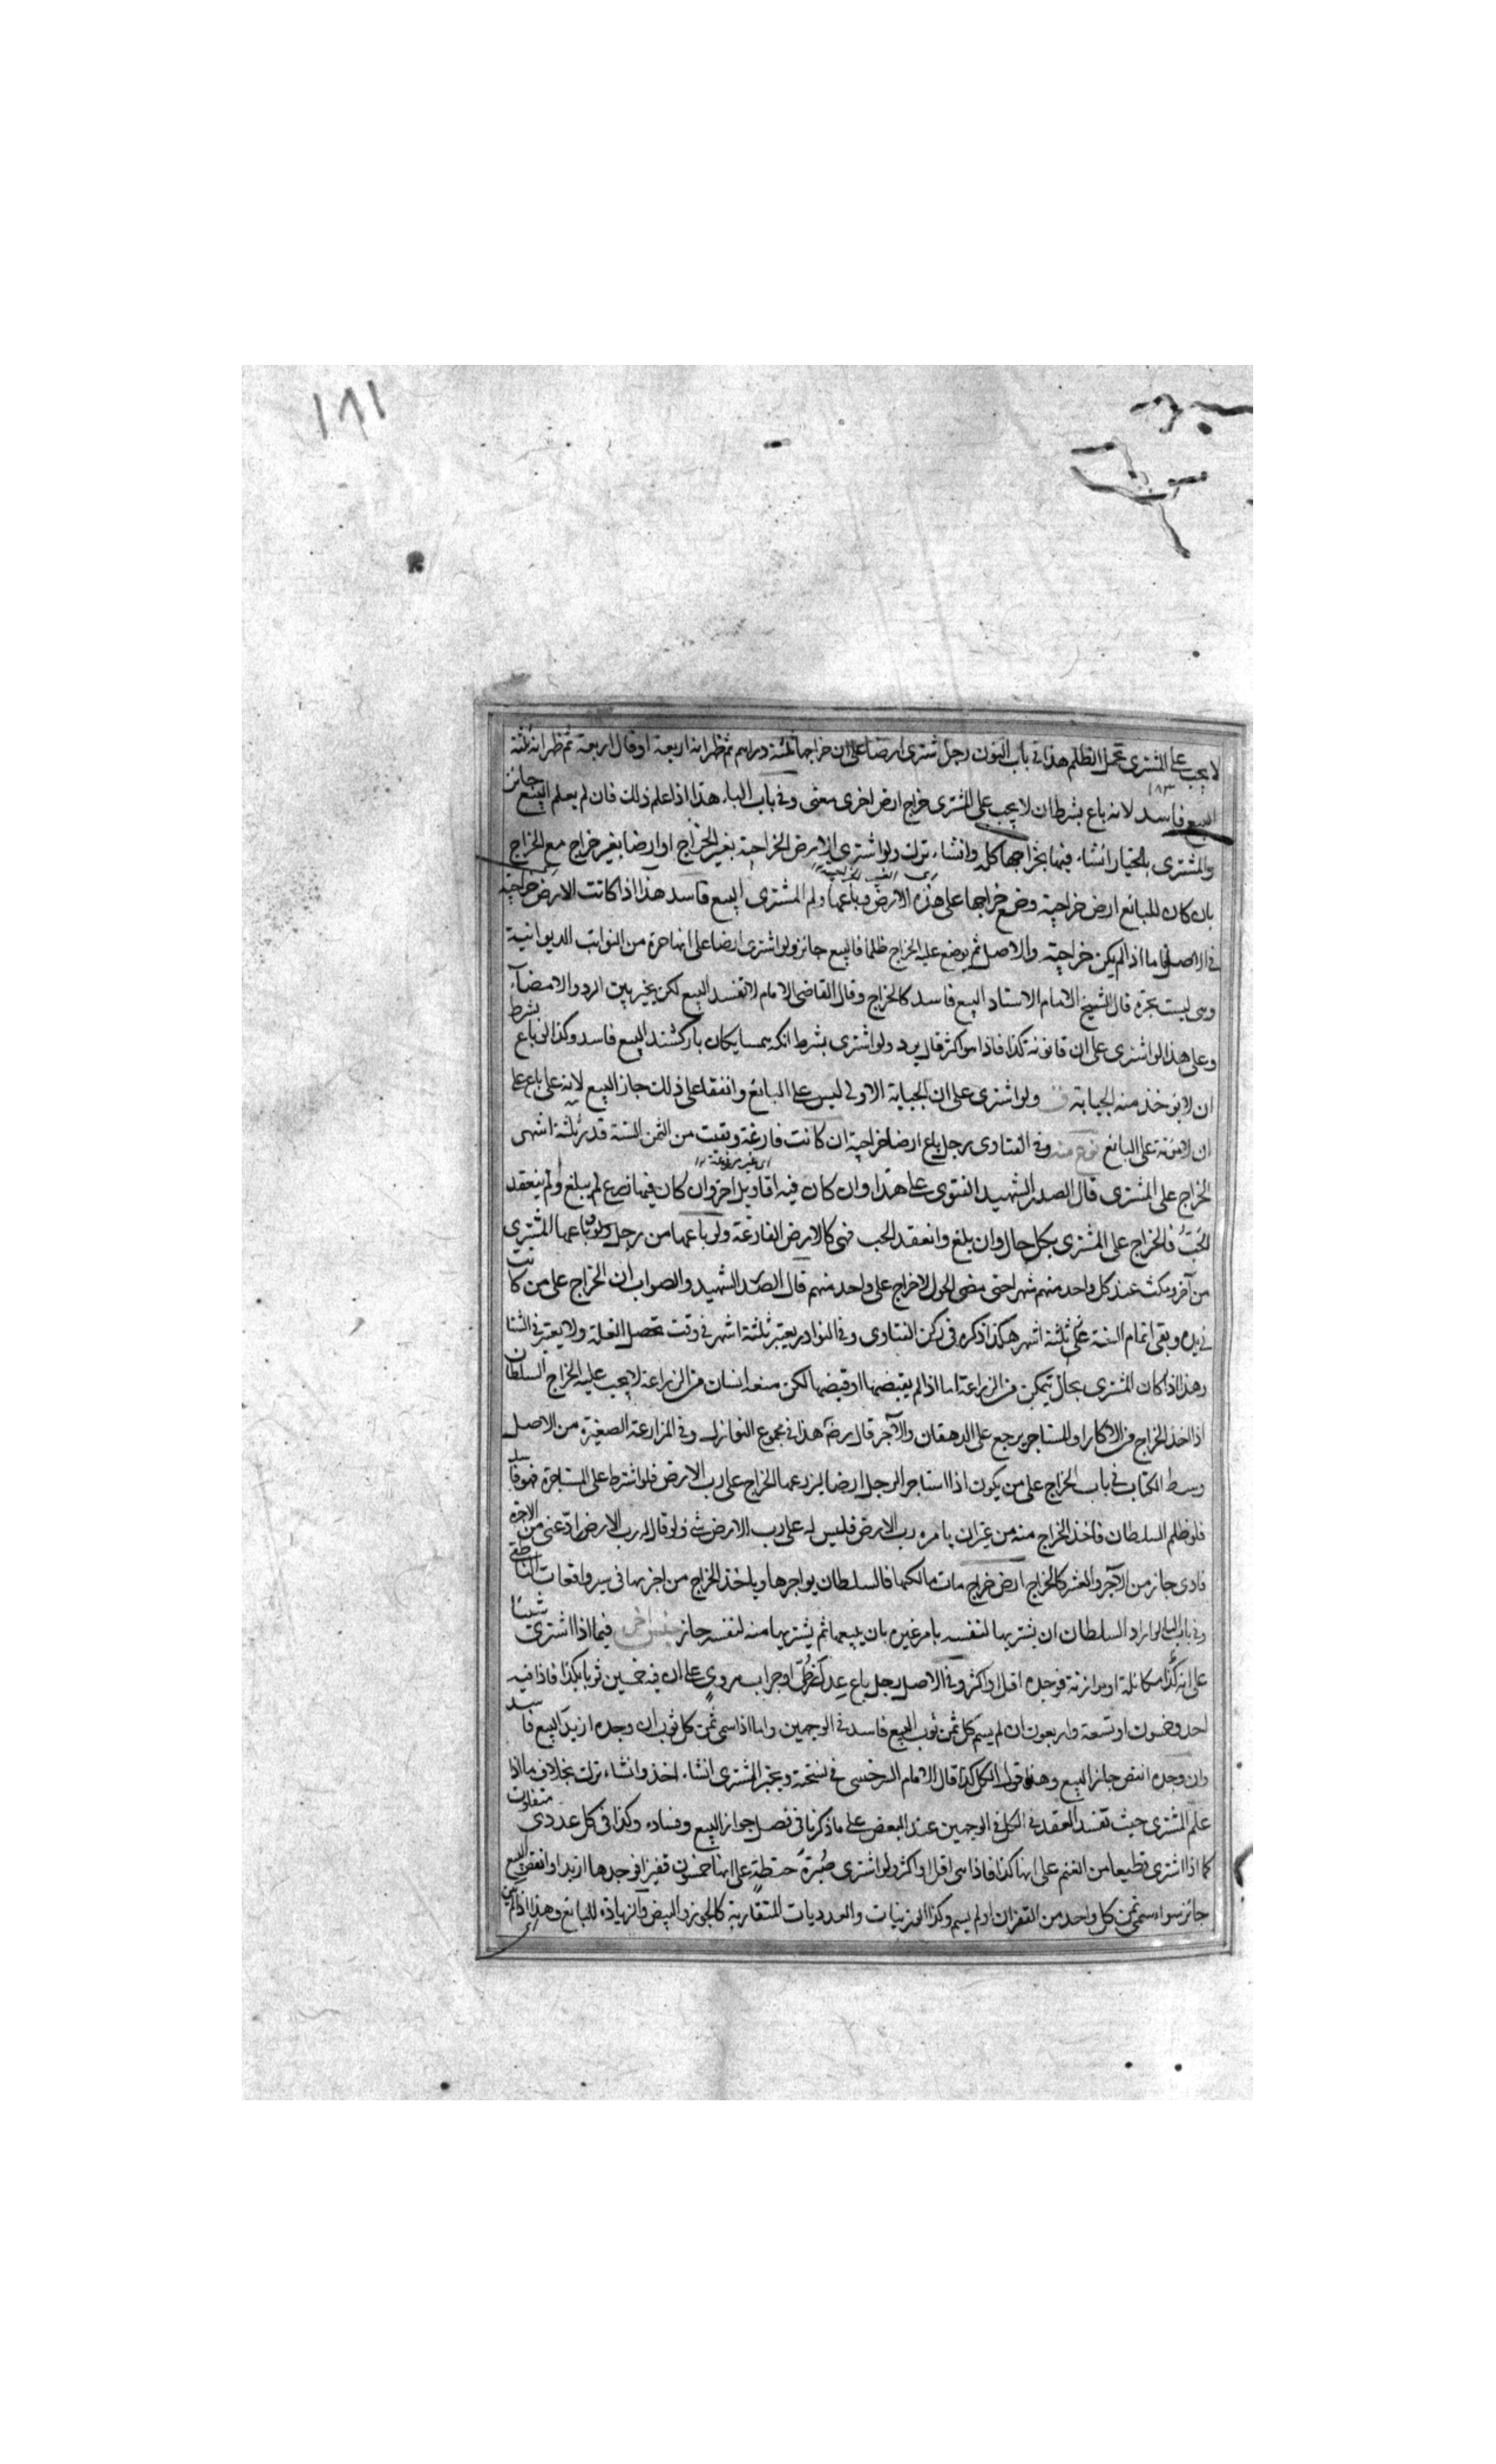 ١٨١
لا يجب على المشترى تحمل الظلم هذا فى باب النون رجل اشترى ارضا على ان خراجها ثلثة دراهم ثم ظهر انه اربعة او قال اربعة ثم ظهر انه ثلثة
١٨٣
البيع فاسد لانه باع بشرط ان لا يجب على المشترى خراج ارض اخرى معنى وفى باب الباء هذا اذا علم ذلك فان لم يعلم البيع جائز
والمشترى بالخيار ان شاء فيها بخراجها كله وان شاء ترك ولو اشترى الارض الخراجية بغير الخراج او ارضا بغير خراج مع الخراج
بان كان للبائع ارض خراجية وضع خراجها على هذه الارض وباعها ولم المشترى البيع فاسد هذا اذا كانت الارض خراجية
فى الاصل فاما اذا لم يكن خراجية والاصل ثم وضع عليه الخراج ظلما فالبيع جائز ولو اشترى ارضا على انها حرة من النوائب الديوانية
وهى ليست بحرة قال الشيخ الامام الاستاد البيع فاسد كالخراج وقال القاضى الامام لا تفسد البيع لكن يخير بين الرد والامضآء
وعلى هذا لو اشترى على ان قانونه كذا فاذا هو اكثر قال يرد ولو اشترى بشرط انكه همسايكان بار كشند البيع فاسد وكذا لو باع بشرط
ان لا يوخذ منه الجباية ولو اشترى على ان الجباية الاولى ليس على البائع واتفقا على ذلك جاز البيع لانه على باع على
ان لا مؤنة على البائع نوع منه وفى الفتاوى رجل باع ارضا خراجية ان كانت فارغة وبقيت من السنة قدر ثلثة اشهر
اى غير مزروعة
الخراج على المشترى قال الصدر الشهيد الفتوى على هذا وان كان فيه اقاويل اخر وان كان فيها زرع لم يبلغ ولم ينعقد
الحَبّ فالخراج على المشترى بكل حال وان بلغ وانعقد الحب فهى كالارض الفارغة ولو باعها من رجل ولو باعها المشترى
من آخر ومكث عند كل واحد منهم شهرا حتى مضى الحول لا خراج على واحد منهم قال الصدر الشهيد والصواب ان الخراج على من كانت
فى يده وبقى اتمام السنة على ثلثة اشهر هكذا ذكره فى زكن الفتاوى وفى النوادر يعتبر ثلثة اشهر فى وقت تحصل الغلة ولا يعتبر فى الشتا
وهذا اذا كان المشترى بحال يتمكن من الزراعة اما اذا لم يقبضها او قبضها لكن منعه انسان من الزراعة لا يجب عليه الخراج السلطان
اذا اخذ الخراج من الاكار او المستاجر يرجع على الدهقان والآجر قال رضه هذا فى مجموع النوازل وفى المزارعة الصغيرة من الاصل
وسط الكتاب فى باب الخراج على من يكون اذا استاجر الرجل ارضا ليزرعها الخراج على رب الارض فلو اشترط على المستاجرة فهو فاسد
فلو ظلم السلطان فاخذ الخراج منه من غير ان يامره رب الارض فليس له على رب الارض شئ ولو قال له رب الارض ادّ عنى من الاجرة
فادى جاز من الآجر والعشر كالخراج ارض خراج مات مالكها فالسلطان يواجرها وياخذ الخراج من اجرتها فى سير واقعات الناطفى
وفى باب الباء لو اراد السلطان ان يشتريها لنفسه يامر غيره بان يبيعها ثم يشتريها منه لنفسه جاز جنس اخر فيما اذا اشترى شيئا
على انه كذا مكائلة او موازنة فوجده اقل او اكثر وفى الاصل رجل باع عدل زطى او جراب هروى على ان فيه خمسين ثوبا بكذا فاذا فيه
احد وخمسون او تسعة واربعون ان لم يسم كل ثمن ثوب البيع فاسد فى الوجهين واما اذا سمى ثمن كل ثوب ان وجده ازيد البيع فاسد
وان وجده انقص جاز البيع وهذا قول الكل كذا قال الامام السرخسى فى نسخته ويخير المشترى ان شاء اخذ وان شاء ترك بخلاف ما اذا
علم المشترى حيث تفسد العقد فى الكل فى الوجهين عند البعض على ما ذكرنا فى فصل جواز البيع وفساده وكذا فى كل عددى متفاوت
كما اذا اشترى قطيعا من الغنم على انها كذا فاذا هى اقل او اكثر ولو اشترى صُبْرَة حنطة على انها خمسون قفيزا فوجدها ازيد او انقص البيع
جائز سواء سمى ثمن كل واحد من القفزان او لم يسم وكذا الوزنيات والعدديات المتقاربة كالجوز والبيض والزيادة للبائع وهذا اذا لم